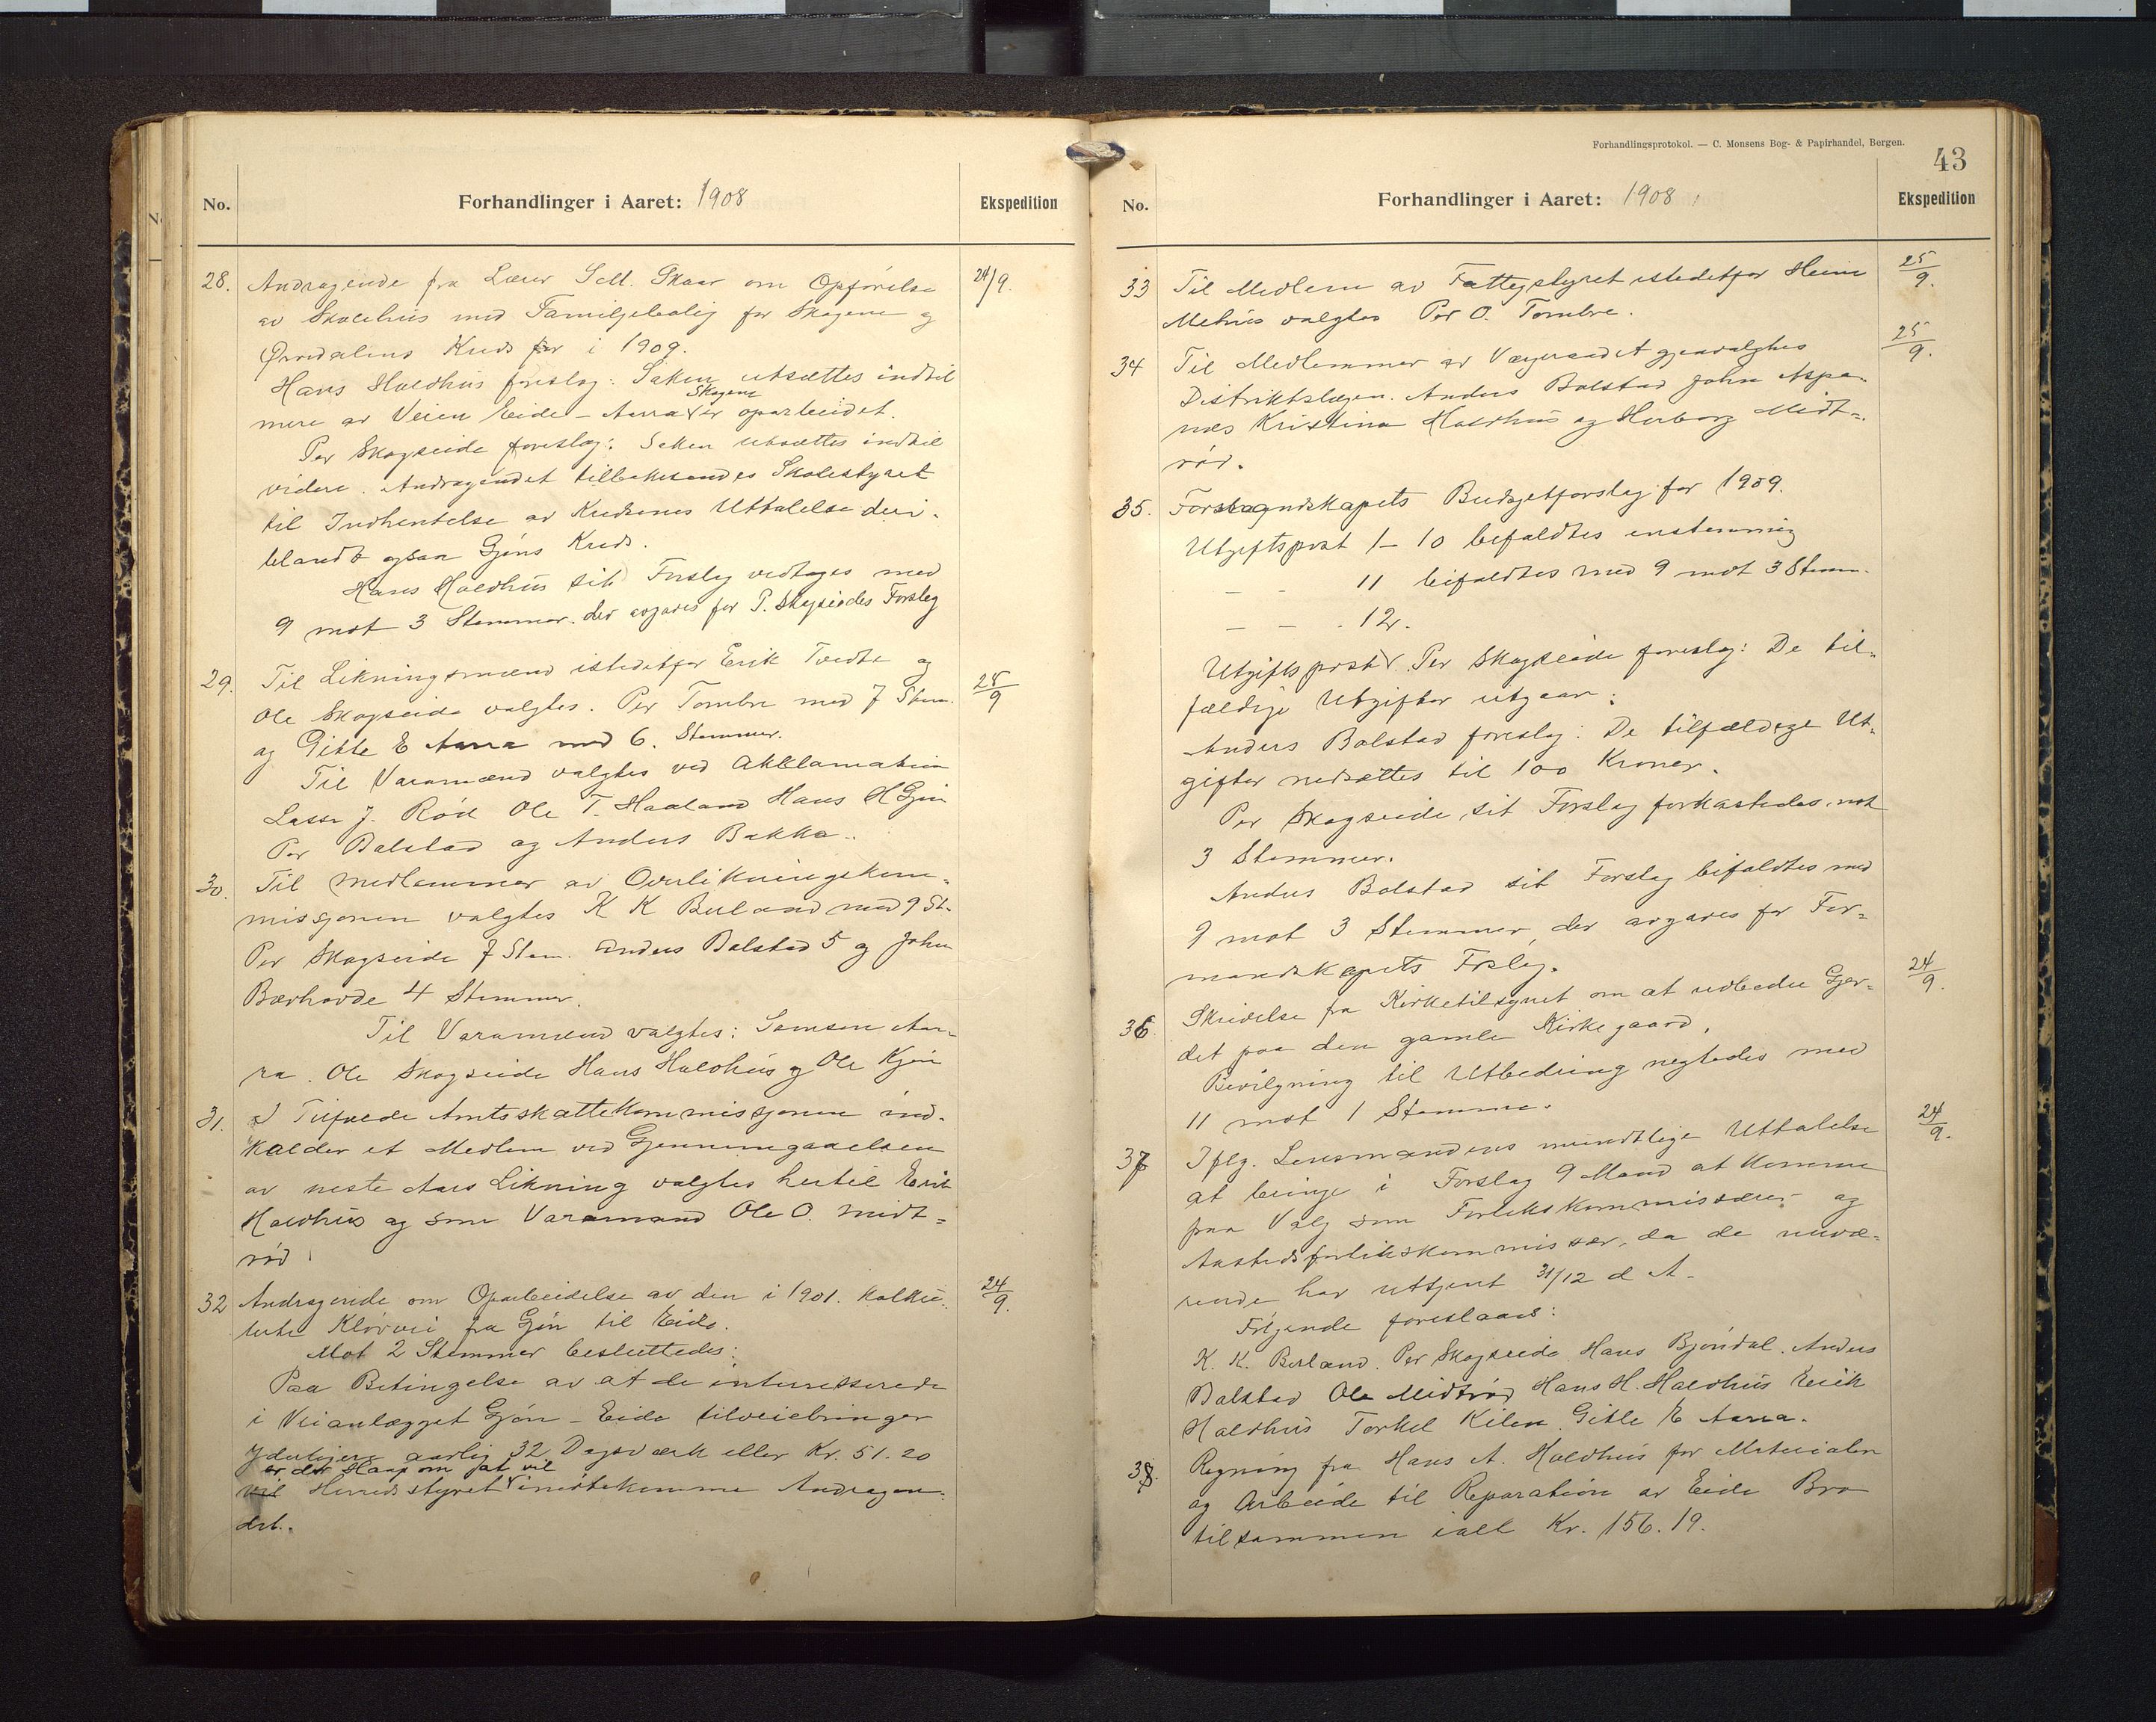 No.
Forhandlinger i Aaret: 1908
Ekspedition
28. Andragende fra Lærer S. M. Skaar om Opførelse 24/9.
av Skolehus med Familjebolig for Skogene og
Kreds for i 1909.
Hans Holdhus foreslog: Saken utsættes indtil
mere av Veien Eide - Aarra Skogene er oparbeidet.
Per Skogseide foreslog: Saken utsættes indtil
videre. Andragendet tilbakesendes Skolestyret
til Indhentelse av Kredsenes Uttalelse deri-
blandt ogsaa Gjøns Kreds.
Hans Holdhus sit Forslag vedtoges med
9 mot 3 Stemmer. der avgaves for P. Skogseides Forslag
29. Til Likningsmænd istedetfor Erik Tvedte og
Ole Skogseide valgtes. Per Tombre med 7 Stem. 25/9
og Gitle E Aarra med 6. Stemmer.
Til Varamænd valgtes ved Akklamation
Lasse J. Rød Ole T. Haaland Hans H Gjøn
Per Bolstad og Anders Bakka.
30. Til medlemmer av Overlikningskom-
missjonen valgtes K K Berland med 9 St.
Per Skogseide 7 Stem. Anders Bolstad 5 og John
Bævhovde 4 Stemmer.
Til Varamænd valgtes: Samson Aar-
ra. Ole Skogseide Hans Holdhus og Ole Kjøn
31. I Tilfælde Amtsskattekommissjonen ind-
kalder et Medlem ved Gjennemgaaelsen
av neste Aars Likning valgtes hertil Erik
Holdhus og som Varamand Ole O. Midt-
rød
32 Andragende om Oparbeidelse av den i 1901. kalku- 24/9.
lerte Kløvvei fra Gjøn til Eide.
Mot 2 Stemmer besluttedes:
Paa Betingelse av at de interesserede
i Veianlægget Gjøn - Eide tilveiebringer
yderligere aarlig 32 Dagsværk eller Kr. 51.20
er der Haap om at vil
vil Herredsstyret imøtekomme Andragen-
det.
Forhandlingsprotokol. — C. Monsens Bog- & Papirhandel, Bergen.
43
No.
Forhandlinger i Aaret: 1908
Ekspedition
33 Til Medlem av Fattigstyret istedetfor Heine 25/9.
Mehus valgtes Per O. Tombre.
34 Til Medlemmer av Værgeraadet gjenvalgtes 25/9.
Distriktslægen. Anders Bolstad John Aspe-
næs Kristina Holdhus og Herborg Midt-
rød.
35. Formandskapets Budgetforslag for 1909.
Utgiftspost 1 - 10 bifaldtes enstemmig
- - 11 bifaldtes med 9 mot 3 Stemm.
- - 12.
Utgiftspost. Per Skogseide foreslog: De til-
fældige Utgifter utgaar.
Anders Bolstad foreslog: De tilfældige Ut-
gifter nedsættes til 100 Kroner.
Per Skogseide sit Forslag forkastedes mot
3 Stemmer.
Anders Bolstad sit Forslag bifaldtes med
9 mot 3 Stemmer, der avgaves for For-
mandskapets Forslag.
36 Skrivelse fra Kirketilsynet om at utbedre Gjer- 24/9.
det paa den gamle Kirkegaard.
Bevilgning til Utbedring negtedes med
11 mot 1 Stemme.
37 Iflg. Lensmandens mundtlige Uttalelse 24/9.
at bringe i Forslag 9 Mand at komme
paa Valg som Forlikskommissærer og
Aastedsforlikskommissær, da de nuvæ-
rende har uttjent 31/12 d A.
Følgende foreslaaes:
K. K. Berland. Per Skogseide Hans Bjøndal. Anders
Bolstad Ole Midtrød Hans H. Holdhus Erik
Holdhus Torkel Kilen Gitle E Aarra.
38. Regning fra Hans A. Holdhus for Materialer
og Arbeide til Reparation av Eide Bro
tilsammen ialt Kr. 156.19.